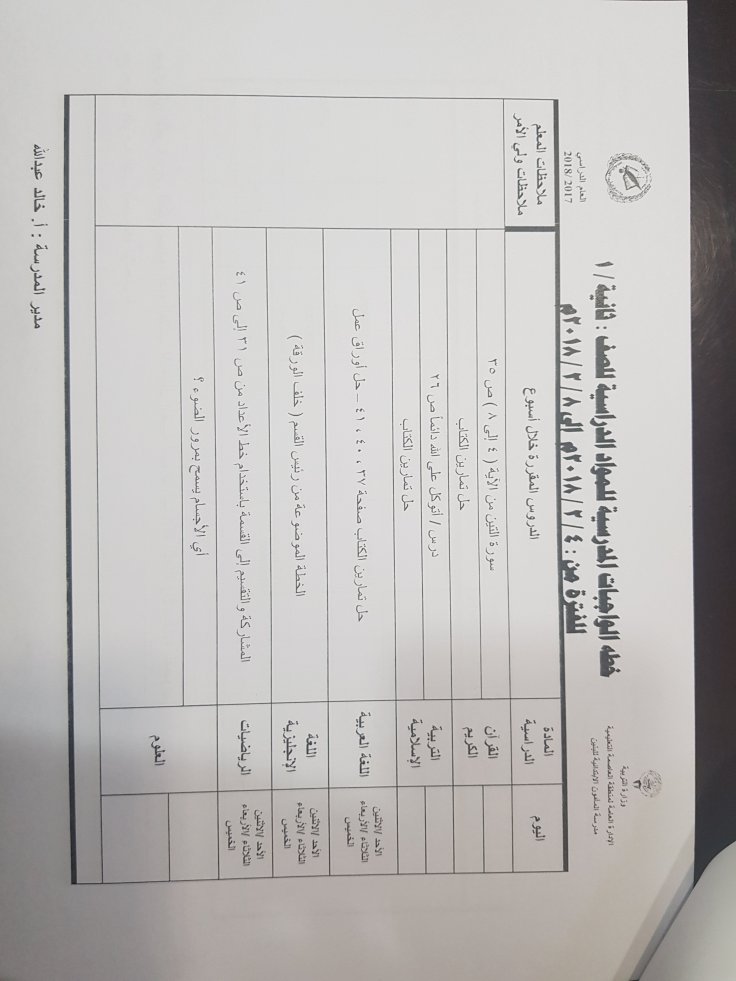 وزارة التربية
الإدارة العامة لمنطقة العاصمة التعليمية
مدرسة المأمون الابتدائية للبنين
العام الدراسي
2018/2017
خطة الواجبات المدرسية للمواد الدراسية للصف : ثانية / ١
للفترة من : ٢٠١٨/٢/٤م إلى ٢٠١٨/٢/٨م
اليوم
المادة الدراسية
الدروس المقررة خلال أسبوع
ملاحظات المعلم
ملاحظات ولي الأمر
القرآن الكريم
سورة التين من الآية ( ٤ إلى ٨ ) ص ٣٥
حل تمارين الكتاب
التربية الإسلامية
درس / أتوكل على الله دائماً ص ٢٦
حل تمارين الكتاب
الأحد /الاثنين
الثلاثاء /الأربعاء
الخميس
اللغة العربية
حل تمارين الكتاب صفحة ٣٧ ، ٤٠ ، ٤١ – حل أوراق عمل
الأحد /الاثنين
الثلاثاء /الأربعاء
الخميس
اللغة الإنجليزية
الخطة الموضوعة من رئيس القسم ( خلف الورقة )
الأحد /الاثنين
الثلاثاء /الأربعاء
الخميس
الرياضيات
المشاركة والتقسيم إلى القسمة باستخدام خط الأعداد من ص ٣١ إلى ص ٤١
العلوم
أي الأجسام يسمح بمرور الضوء ؟
مدير المدرسة : أ. خالد عبدالله